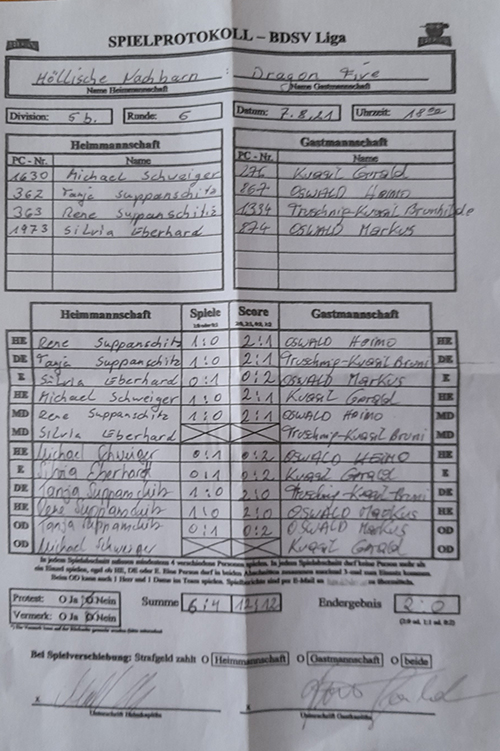 SPIELPROTOKOLL – BDSV Liga
Höllische Nachbarn : Dragon Five
Name Heimmannschaft Name Gastmannschaft
Division: 5 b. Runde: 6 Datum: 7.8.21 Uhrzeit: 18 00
Heimmannschaft Gastmannschaft
PC - Nr. Name PC - Nr. Name
1630 Michael Schweiger 276 Kvasil Gerald
362 Tanja Suppanschitz 867 OSWALD Heimo
363 Rene Suppanschitz 1334 Truschnig-Kvasil Brunhilde
1973 Silvia Eberhard 874 OSWALD Markus
Heimmannschaft Spiele Score Gastmannschaft
HE Rene Suppanschitz 1:0 2:1 OSWALD Heimo HE
DE Tanja Suppanschitz 1:0 2:1 Truschnig-Kvasil Bruni DE
E Silvia Eberhard 0:1 0:2 OSWALD Markus E
HE Michael Schweiger 1:0 2:1 Kvasil Gerald HE
MD Rene Suppanschitz 1:0 2:1 OSWALD Heimo MD
MD Silvia Eberhard Truschnig-Kvasil Bruni MD
HE Michael Schweiger 0:1 0:2 OSWALD HEIMO HE
E Silvia Eberhardt 0:1 0:2 Kvasil Gerald E
DE Tanja Suppanschitz 1:0 2:0 Truschnig-Kvasil Bruni DE
HE Rene Suppanschitz 1:0 2:0 OSWALD Markus HE
OD Tanja Suppanschitz 0:1 0:2 OSWALD Markus OD
OD Michael Schweiger Kvasil Gerald OD
In jedem Spielabschnitt müssen mindestens 4 verschiedene Personen spielen. In jedem Spielabschnitt darf keine Person mehr als
ein Einzel spielen, egal ob HE, DE oder E. Eine Person darf in beiden Abschnitten zusammen maximal 3-mal zum Einsatz kommen.
Beim OD kann auch 1 Herr und 1 Dame im Team spielen. Spielberichte per E-Mail an zu übermitteln.
Protest: O Ja O Nein Summe 6:4 12:12 Endergebnis 2:0
Vermerk: O Ja O Nein (2:0 od. 1:1 od. 0:2)
Bei Spielverschiebung: Strafgeld zahlt O Heimmannschaft O Gastmannschaft O beide
x x
Unterschrift Heimkapitän Unterschrift Gastkapitän